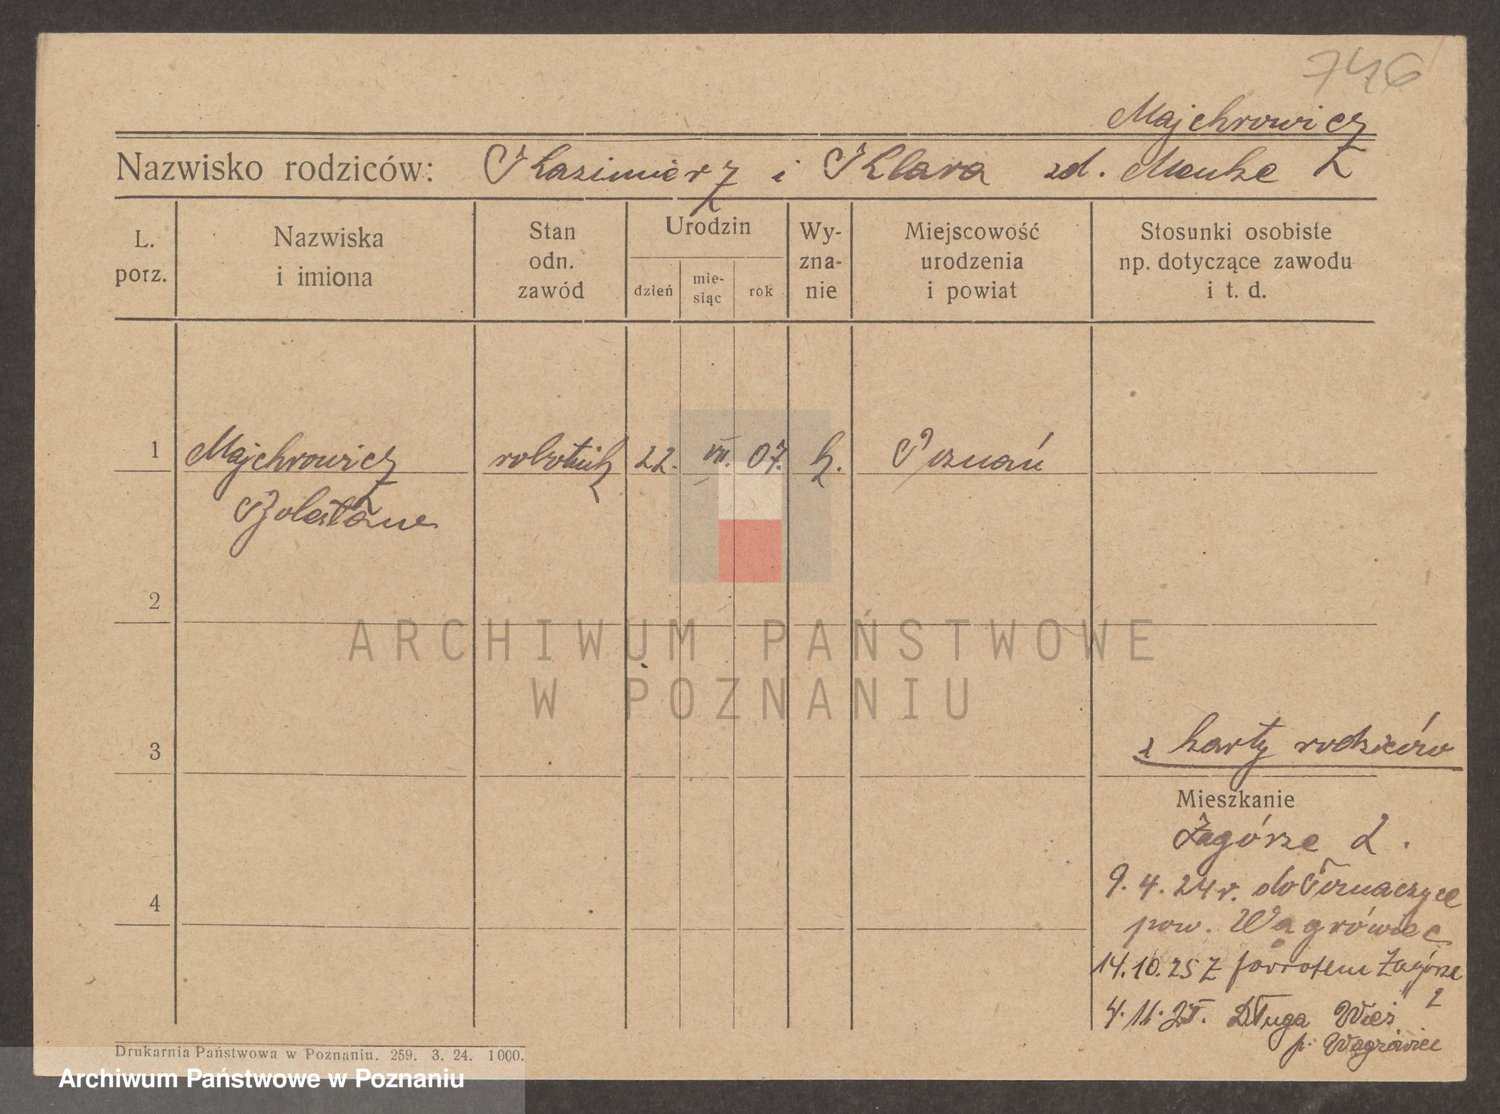 746
Majchrowicz
Nazwisko rodziców: Kazimierz i Klara zd. Menke
L. porz.
Nazwiska i imiona
Stan odn. zawód
Urodzin
dzień
mie-siąc
rok
Wy-zna-nie
Miejscowość urodzenia i powiat
Stosunki osobiste np. dotyczące zawodu i t. d.
1 Majchrowicz robotnik 22. VII. 07. k. Poznań
2
3
4
z karty rodziców
Mieszkanie
Zagórze 2.
9. 4. 24 r. do
pow. Wągrówiec
14. 10. 25 z Zagórze 2
4. 11. Długa Wieś
p. Wągrówiec
Drukarnia Państwowa w Poznaniu. 259. 3. 24. 1000.
ARCHIWUM PAŃSTWOWE
W POZNANIU
Archiwum Państwowe w Poznaniu